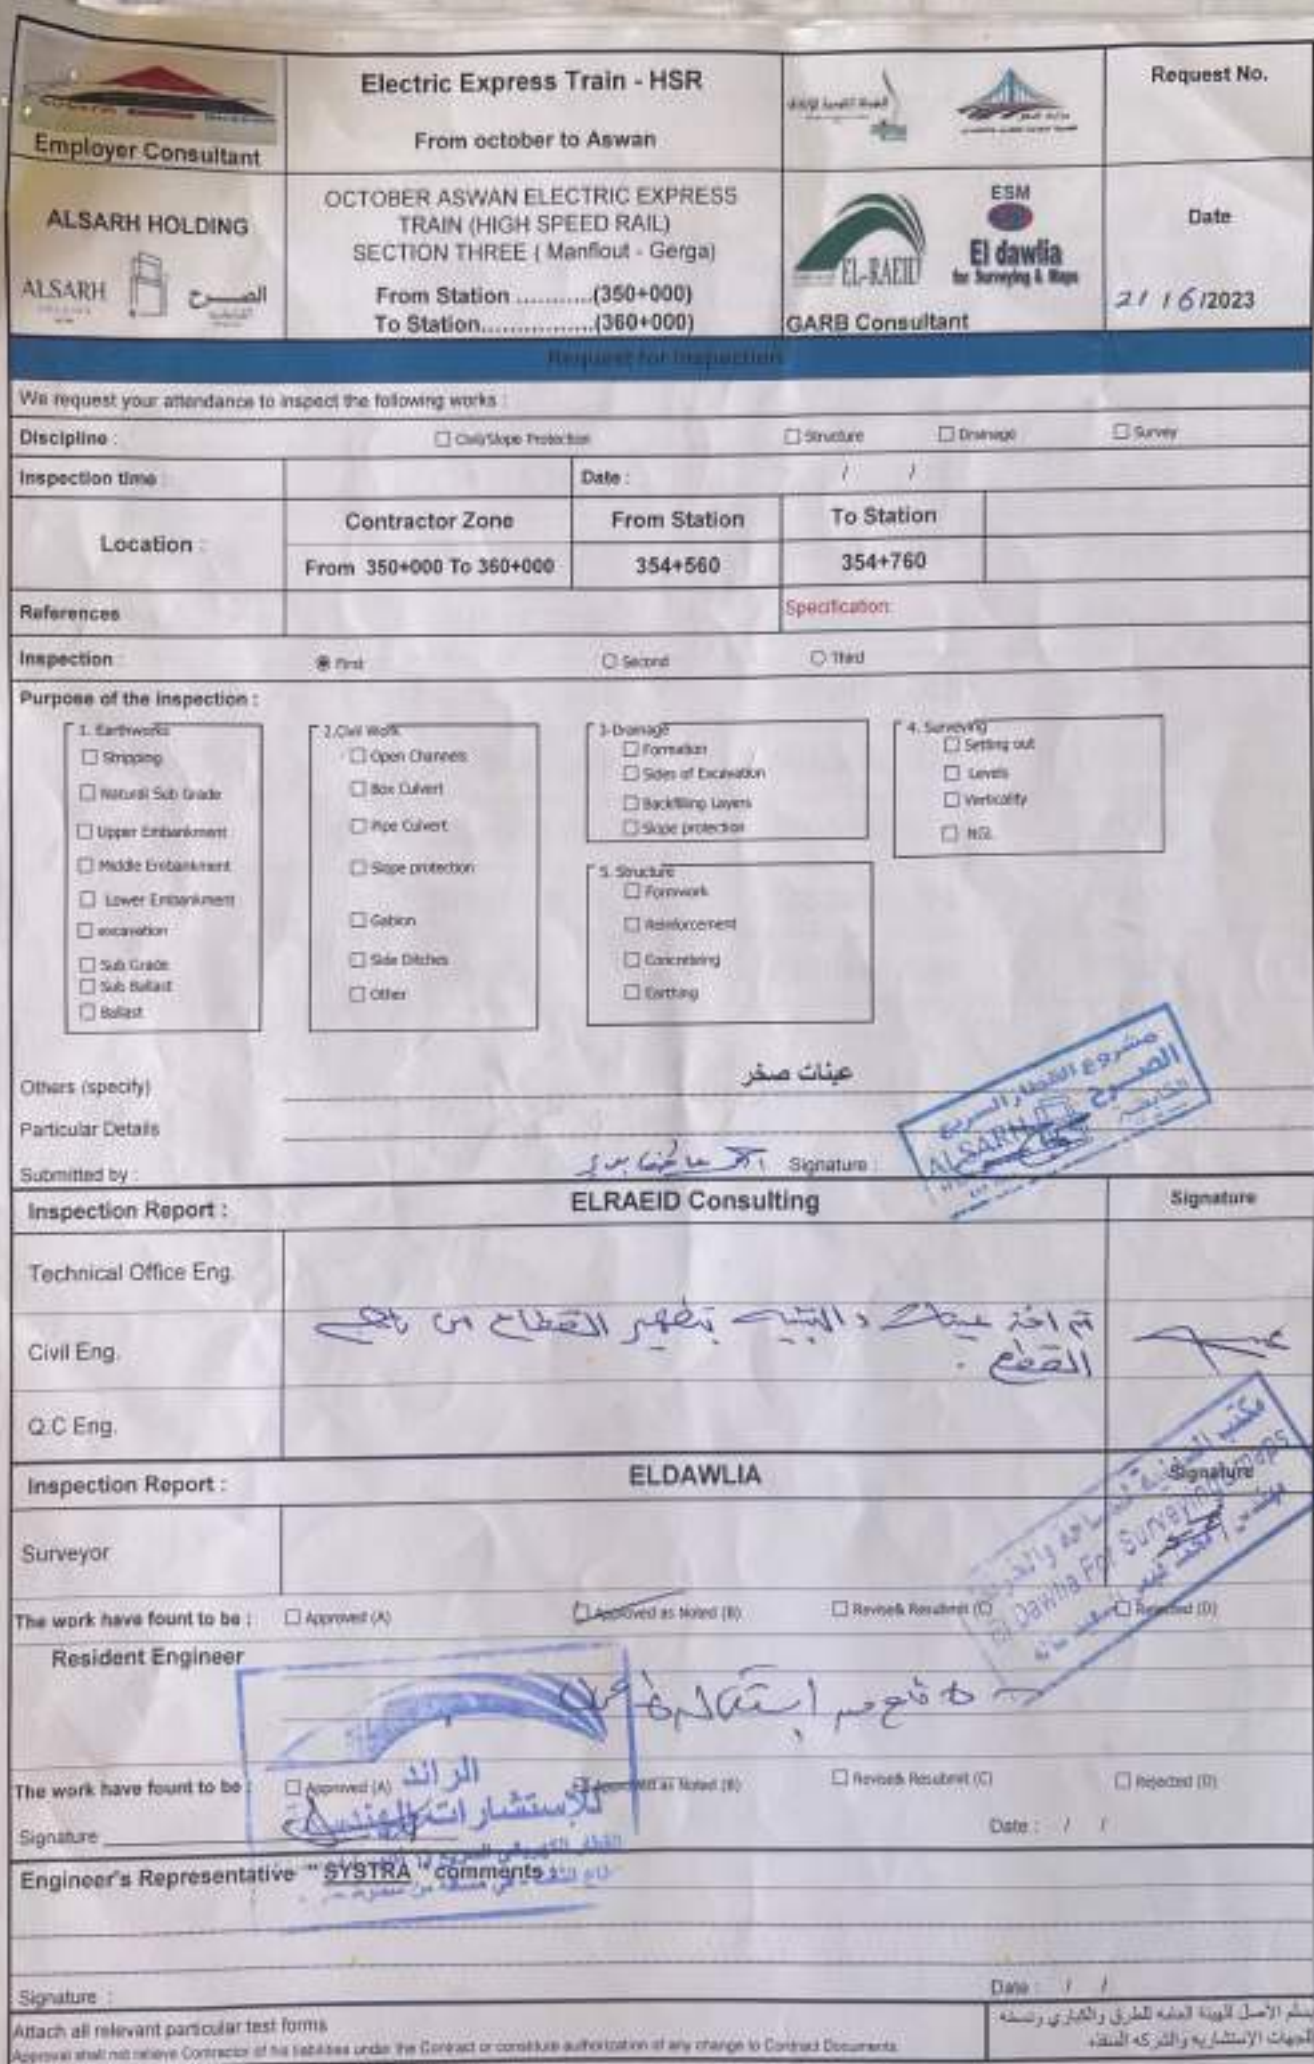 Electric Express Train - HSR
From october to Aswan
Request No.
Employer Consultant
ALSARH HOLDING
ALSARH
الصرح
OCTOBER ASWAN ELECTRIC EXPRESS
TRAIN (HIGH SPEED RAIL)
SECTION THREE ( Manflout - Gerga)
From Station ...........(350+000)
To Station................(360+000)
EL-RAEID
ESM
El dawlia
for Surveying & Maps
GARB Consultant
Date
2/ 6/2023
Request for Inspection
We request your attendance to inspect the following works :
Discipline :
Civil/Slope Protection
Structure
Drainage
Survey
Inspection time :
Date : / /
Location :
Contractor Zone
From Station
To Station
From 350+000 To 360+000
354+560
354+760
References
Specification:
Inspection
First
Second
Third
Purpose of the inspection :
1. Earthworks
Stripping
Natural Sub Grade
Upper Embankment
Middle Embankment
Lower Embankment
excavation
Sub Grade
Sub Ballast
Ballast
2.Civil Work
Open Channels
Box Culvert
Pipe Culvert
Slope protection
Gabion
Side Ditches
Other
3-Drainage
Formation
Sides of Excavation
Backfilling Layers
Slope protection
4. Surveying
Setting out
Levels
Verticality
NGL
5. Structure
Formwork
Reinforcement
Concreteing
Earthing
Others (specify)
عينات صخر
Particular Details
Submitted by :
Signature :
مشروع القطار السريع
الصرح
ALSARH
Inspection Report :
ELRAEID Consulting
Signature
Technical Office Eng.
Civil Eng.
تم اخذ عينات والتنبيه بتطهير القطاع من ناتج
القطع .
Q.C Eng.
Inspection Report :
ELDAWLIA
Signature
مكتب الدولية للمساحة والخرائط
El Dawlia For Surveying & maps
Surveyor
The work have fount to be :
Approved (A)
Approved as Noted (B)
Revise& Resubmit (C)
Rejected (D)
Resident Engineer
الرائد
للاستشارات الهندسية
The work have fount to be :
Approved (A)
Approved as Noted (B)
Revise& Resubmit (C)
Rejected (D)
Signature
Date : / /
Engineer's Representative " SYSTRA " comments :
Signature :
Date : / /
Attach all relevant particular test forms
Approval shall not relieve Contractor of his liabilities under the Contract or constitute authorization of any change to Contract Documents.
يسلم الأصل للهيئة العامه للطرق والكباري ونسخه
للجهات الاستشاريه والشركه المنفذه